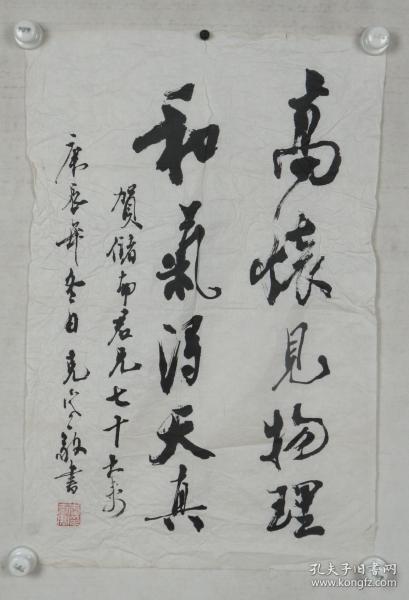 高懷見物理
和氣得天真
賀儲南君兄七十大壽
庚辰年冬日克敏書
孔夫子旧书网
www.kongfz.com